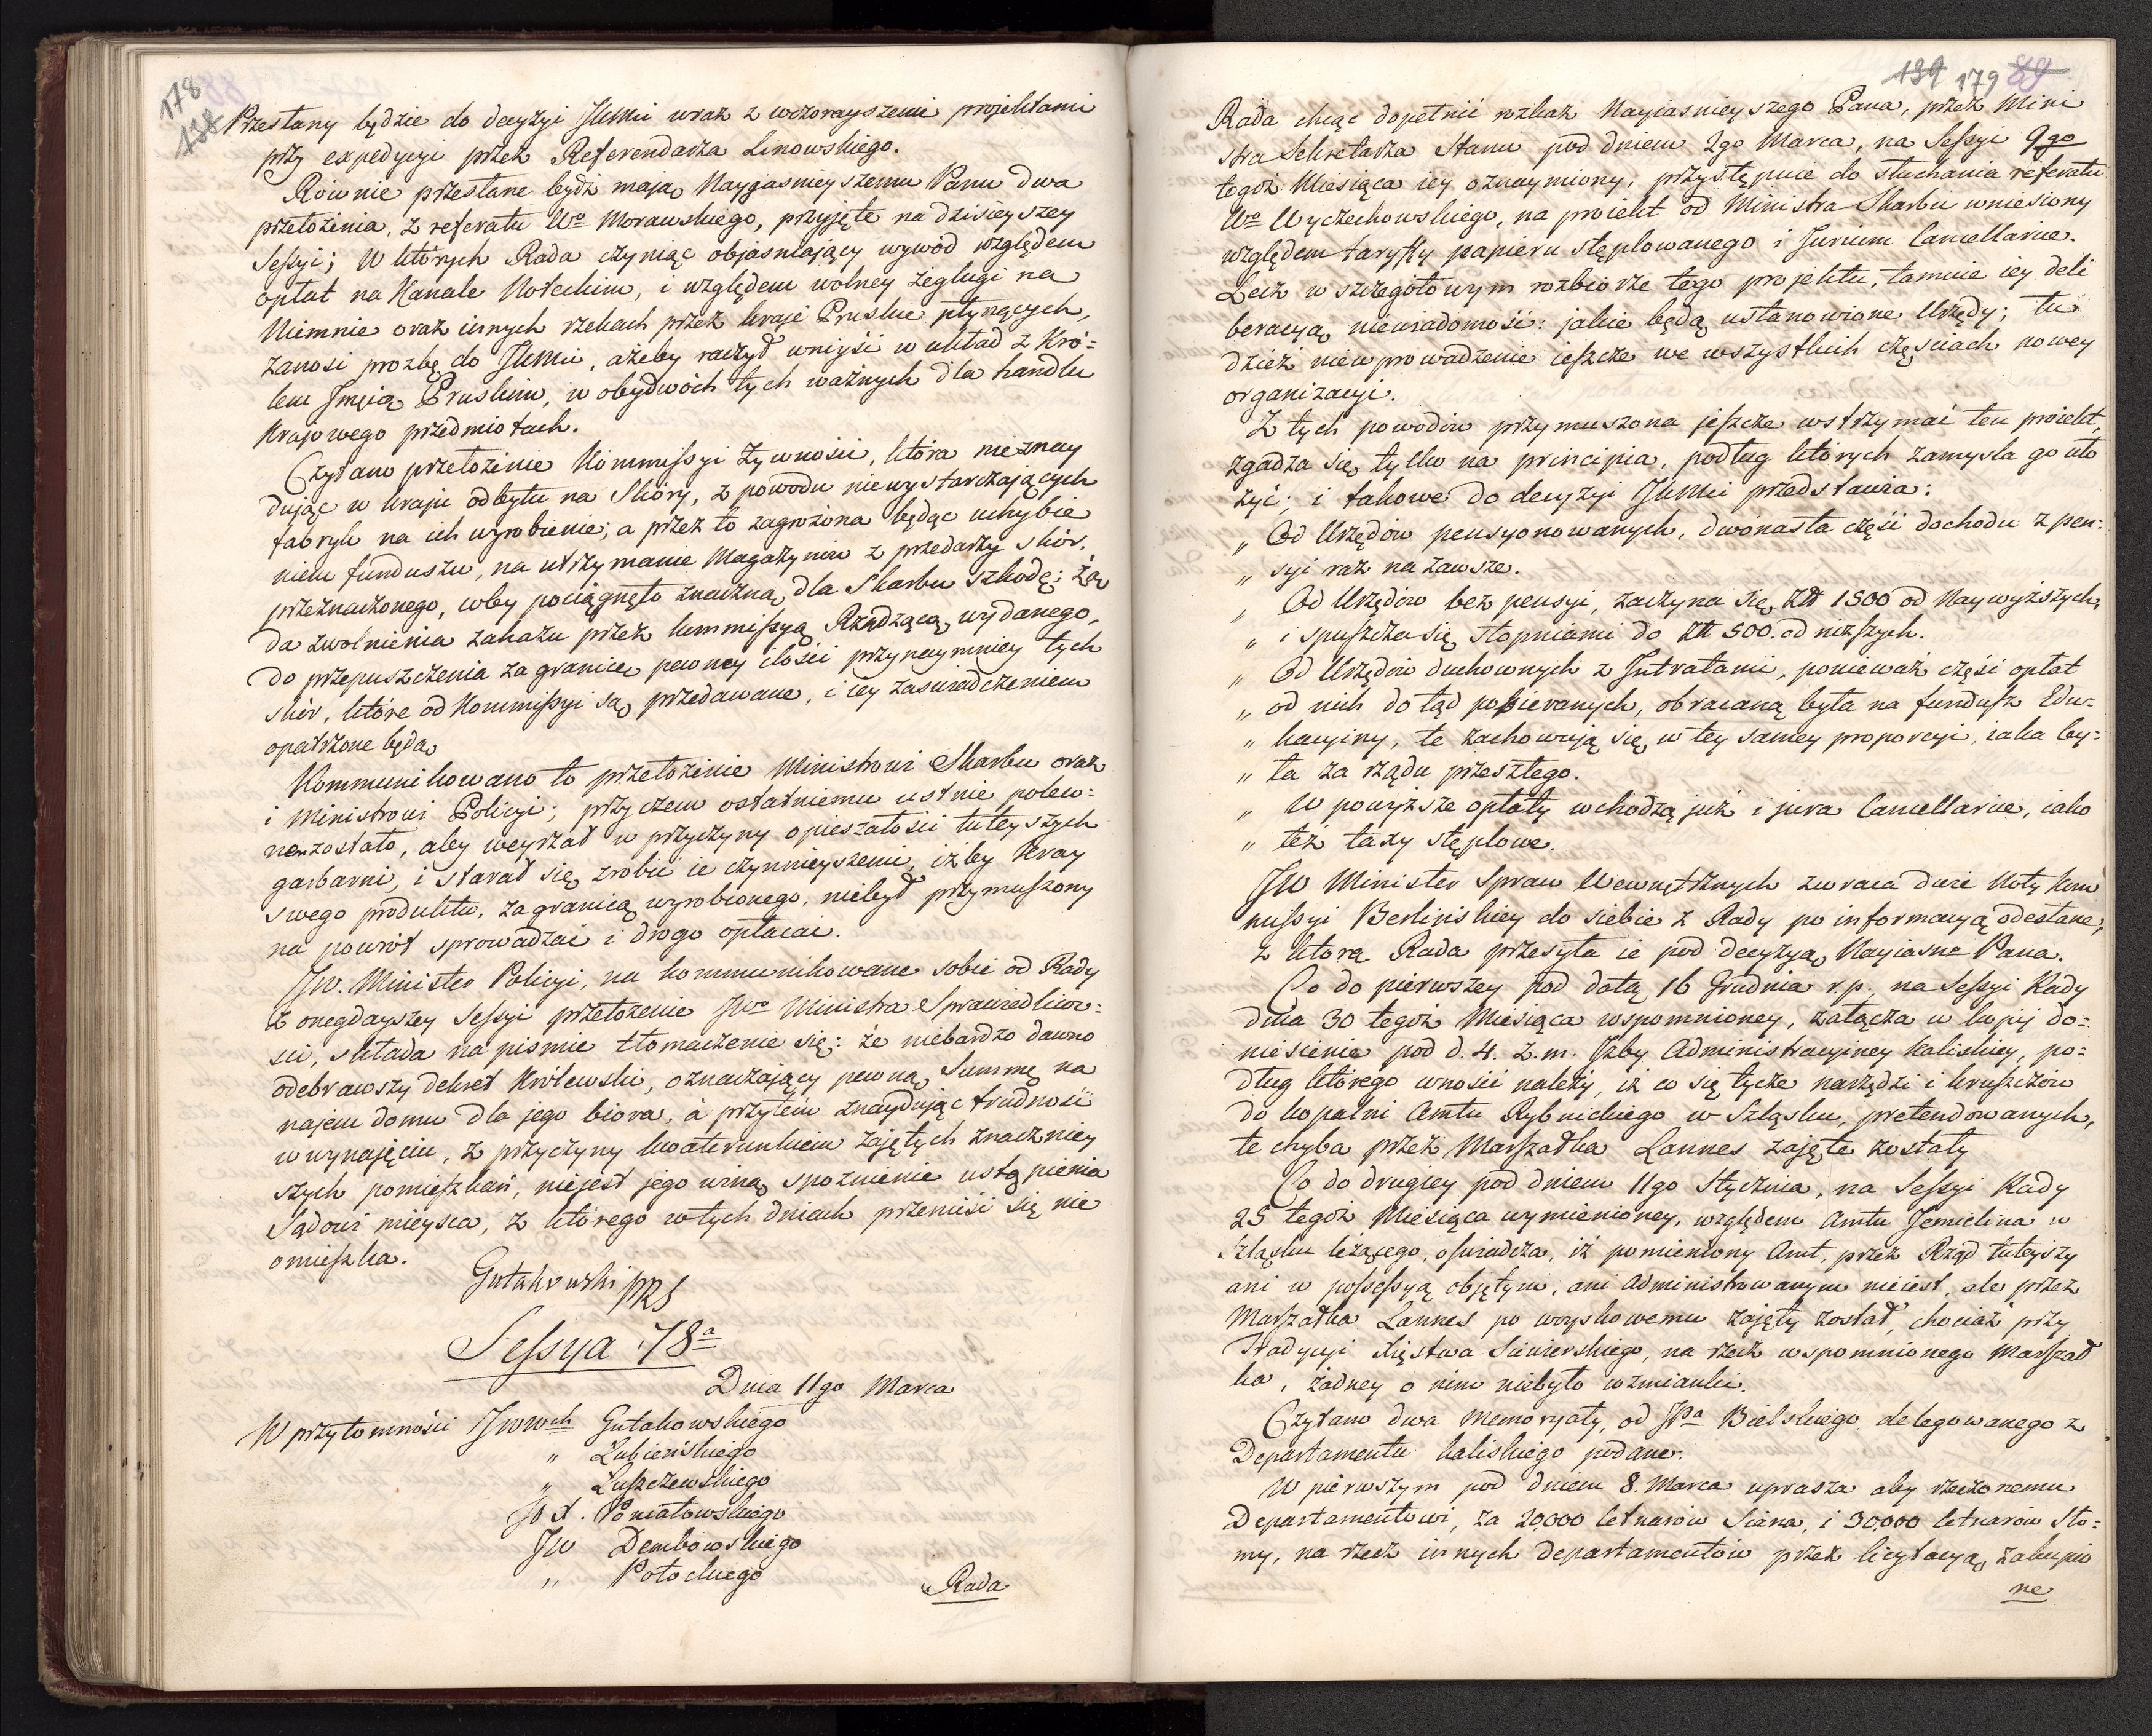 178
138
Przesłany będzie do decyzyi JKMci wraz z wczorayszemi projektami
przy expedycyi przez Referendarza Linowskiego.
Rownie przesłane bydź maią Nayjasnieyszemu Panu dwa
przełożenia, z referatu Wo Morawskiego, przyjęte na dzisieyszey
Sessyi; W których Rada czyniąc objasniający wywód względem
opłat na Kanale Noteckim, i względem wolney żeglugi na
Niemnie oraz innych rzekach przez kraje Pruskie płynących,
zanosi prozbę do JKMci, ażeby raczył wniyść w układ z Kró=
lem Jmcią Pruskim, w obydwóch tych ważnych dla handlu
Krajowego przedmiotach.
Czytano przełożenie Kommissyi Żywności, która nieznay
dując w kraju odbytu na Skóry, z powodu niewystarczających
fabryk na ich wyrobienie; a przez to zagrożona będąc uchybie
niem funduszu, na utrzymanie Magazynów z przedaży skór,
przeznaczonego, coby pociągnęło znaczną dla Skarbu szkodę; żą
da zwolnienia zakazu przez kommissyą Rządzącą wydanego,
do przepuszczenia za granicę pewney ilości przynaymniey tych
skór, które od Kommissyi są przedawane, i iey zaświadczeniem
opatrzone będą
Kommunikowano to przełożenie Ministrowi Skarbu oraz
i Ministrowi Policyi; przyczem ostatniemu ustnie polec=
nem zostało, aby weyrzał w przyczyny opieszałości tuteyszych
garbarni, i starał się zrobić ie czynnieyszemi, iżby Kray
swego produktu, zagranicą wyrobionego, niebył przymuszony
na powrót sprowadzać i drogo opłacać.
JW. Minister Policyi, na kommunikowane sobie od Rady
z onegdayszey Sessyi przełożenie JWo Ministra Sprawiedliwo=
ści, składa na pismie tłomaczenie się: że niebardzo dawno
odebrawszy dekret Królewski, oznaczający pewną Summę na
najem domu dla jego biora, à przytém znaydując trudność
w wynajęciu, z przyczyny kwaterunkiem zajętych znaczniey
szych pomieszkań, niejest jego winą spoznienie ustąpienia
Sądowi mieysca, z którego w tych dniach przenieść się nie
omieszka.
Gutakowski PRS
Sessya 78a
Dnia 11go Marca
W przytomności JWWch Gutakowskiego
" Łubieńskiego
" Łuszczewskiego
JO X. Poniatowskiego
JW Dembowskiego
" Potockiego
"Rada
139 179 89
Rada chcąc dopełnić rozkaz Nayiasnieyszego Pana, przez Mini
stra Sekretarza Stanu pod dniem 2go Marca, na Sessyi 9go
tegoż Miesiąca iey oznaymiony, przystępuie do słuchania referatu
Wo Wyczechowskiego, na proiekt od Ministra Skarbu wniesiony
względem taryffy papieru stęplowanego i Jurium Cancellariae.
Lecz w szczegółowym rozbiorze tego projektu, tamuie iey deli
beracyą, niewiadomość: jakie będą ustanowione Urzędy; tu
dzież niewprowadzenie ieszcze we wszystkich częściach nowey
organizacyi.
Z tych powodów przymuszona jeszcze wstrzymać ten proiekt,
zgadza się tylko na principia, podług których zamysla go uło
żyć; i takowe do decyzyi JKMci przedstawia:
" Od Urzędów pensyonowanych, dwónasta część dochodu z pen=
" syi raz na zawsze.
" Od Urzędów bez pensyi, zaczyna się Zł 1500 od Naywyższych,
" i spuszcza się stopniami do Zł 500. od niższych.
" Od Urzędów duchownych z Intratami, ponieważ część opłat
" od nich dotąd pobieranych, obracaną była na fundusz Edu=
" kacyiny, te zachowują się w tey samey proporcyi, iaka by=
" ła za rządu przeszłego.
" W powyższe opłaty wchodzą już i jura Cancellariae, iako
" też taxy stęplowe.
JW Minister Spraw Wewnętrznych zwraca dwie Noty Kom
missyi Berlińskiey do siebie z Rady po informacyą odesłane,
z którą Rada przesyła ie pod decyzyą Nayiasno Pana.
Co do pierwszey pod datą 16 Grudnia r. p. na Sessyi Rady
dnia 30 tegoż Miesiąca wspomnioney, załącza w kopij do=
niesienie pod d. 4. z. m. Izby Administracyiney Kaliskiey, po=
dług którego wnosić należy, iż co się tycze narzędzi i kruszców
do kopalni Amtu Rybnickiego w Szląsku, pretendowanych,
te chyba przez Marszałka Lannes zajęte zostały
Co do drugiey pod dniem 11go Stycznia, na Sessyi Rady
25 tegoż Miesiąca wymienioney, względem Amtu Jemielina w
Szląsku leżącego, oświadcza, iż pomieniony Amt, przez Rząd tuteyszy
ani w possessyą objętym, ani Administrowanym nieiest, ale przez
Marszałka Lannes po woyskowemu zajęty został, chociaż przy
Tradycyi Xięstwa Siewierskiego, na rzecz wspomnionego Marszał
ka, żadney o nim niebyło wzmianki.
Czytano dwa Memoryały, od JPa Bielskiego delegowanego z
Departamentu Kaliskiego podane.
W pierwszym pod dniem 8. Marca uprasza aby rzeczonemu
Departamentowi, za 20,000 letnarów Siana, i 30,000 letnarów Sło=
my, na rzecz innych Departamentów przez licytacyą zakupio
ne